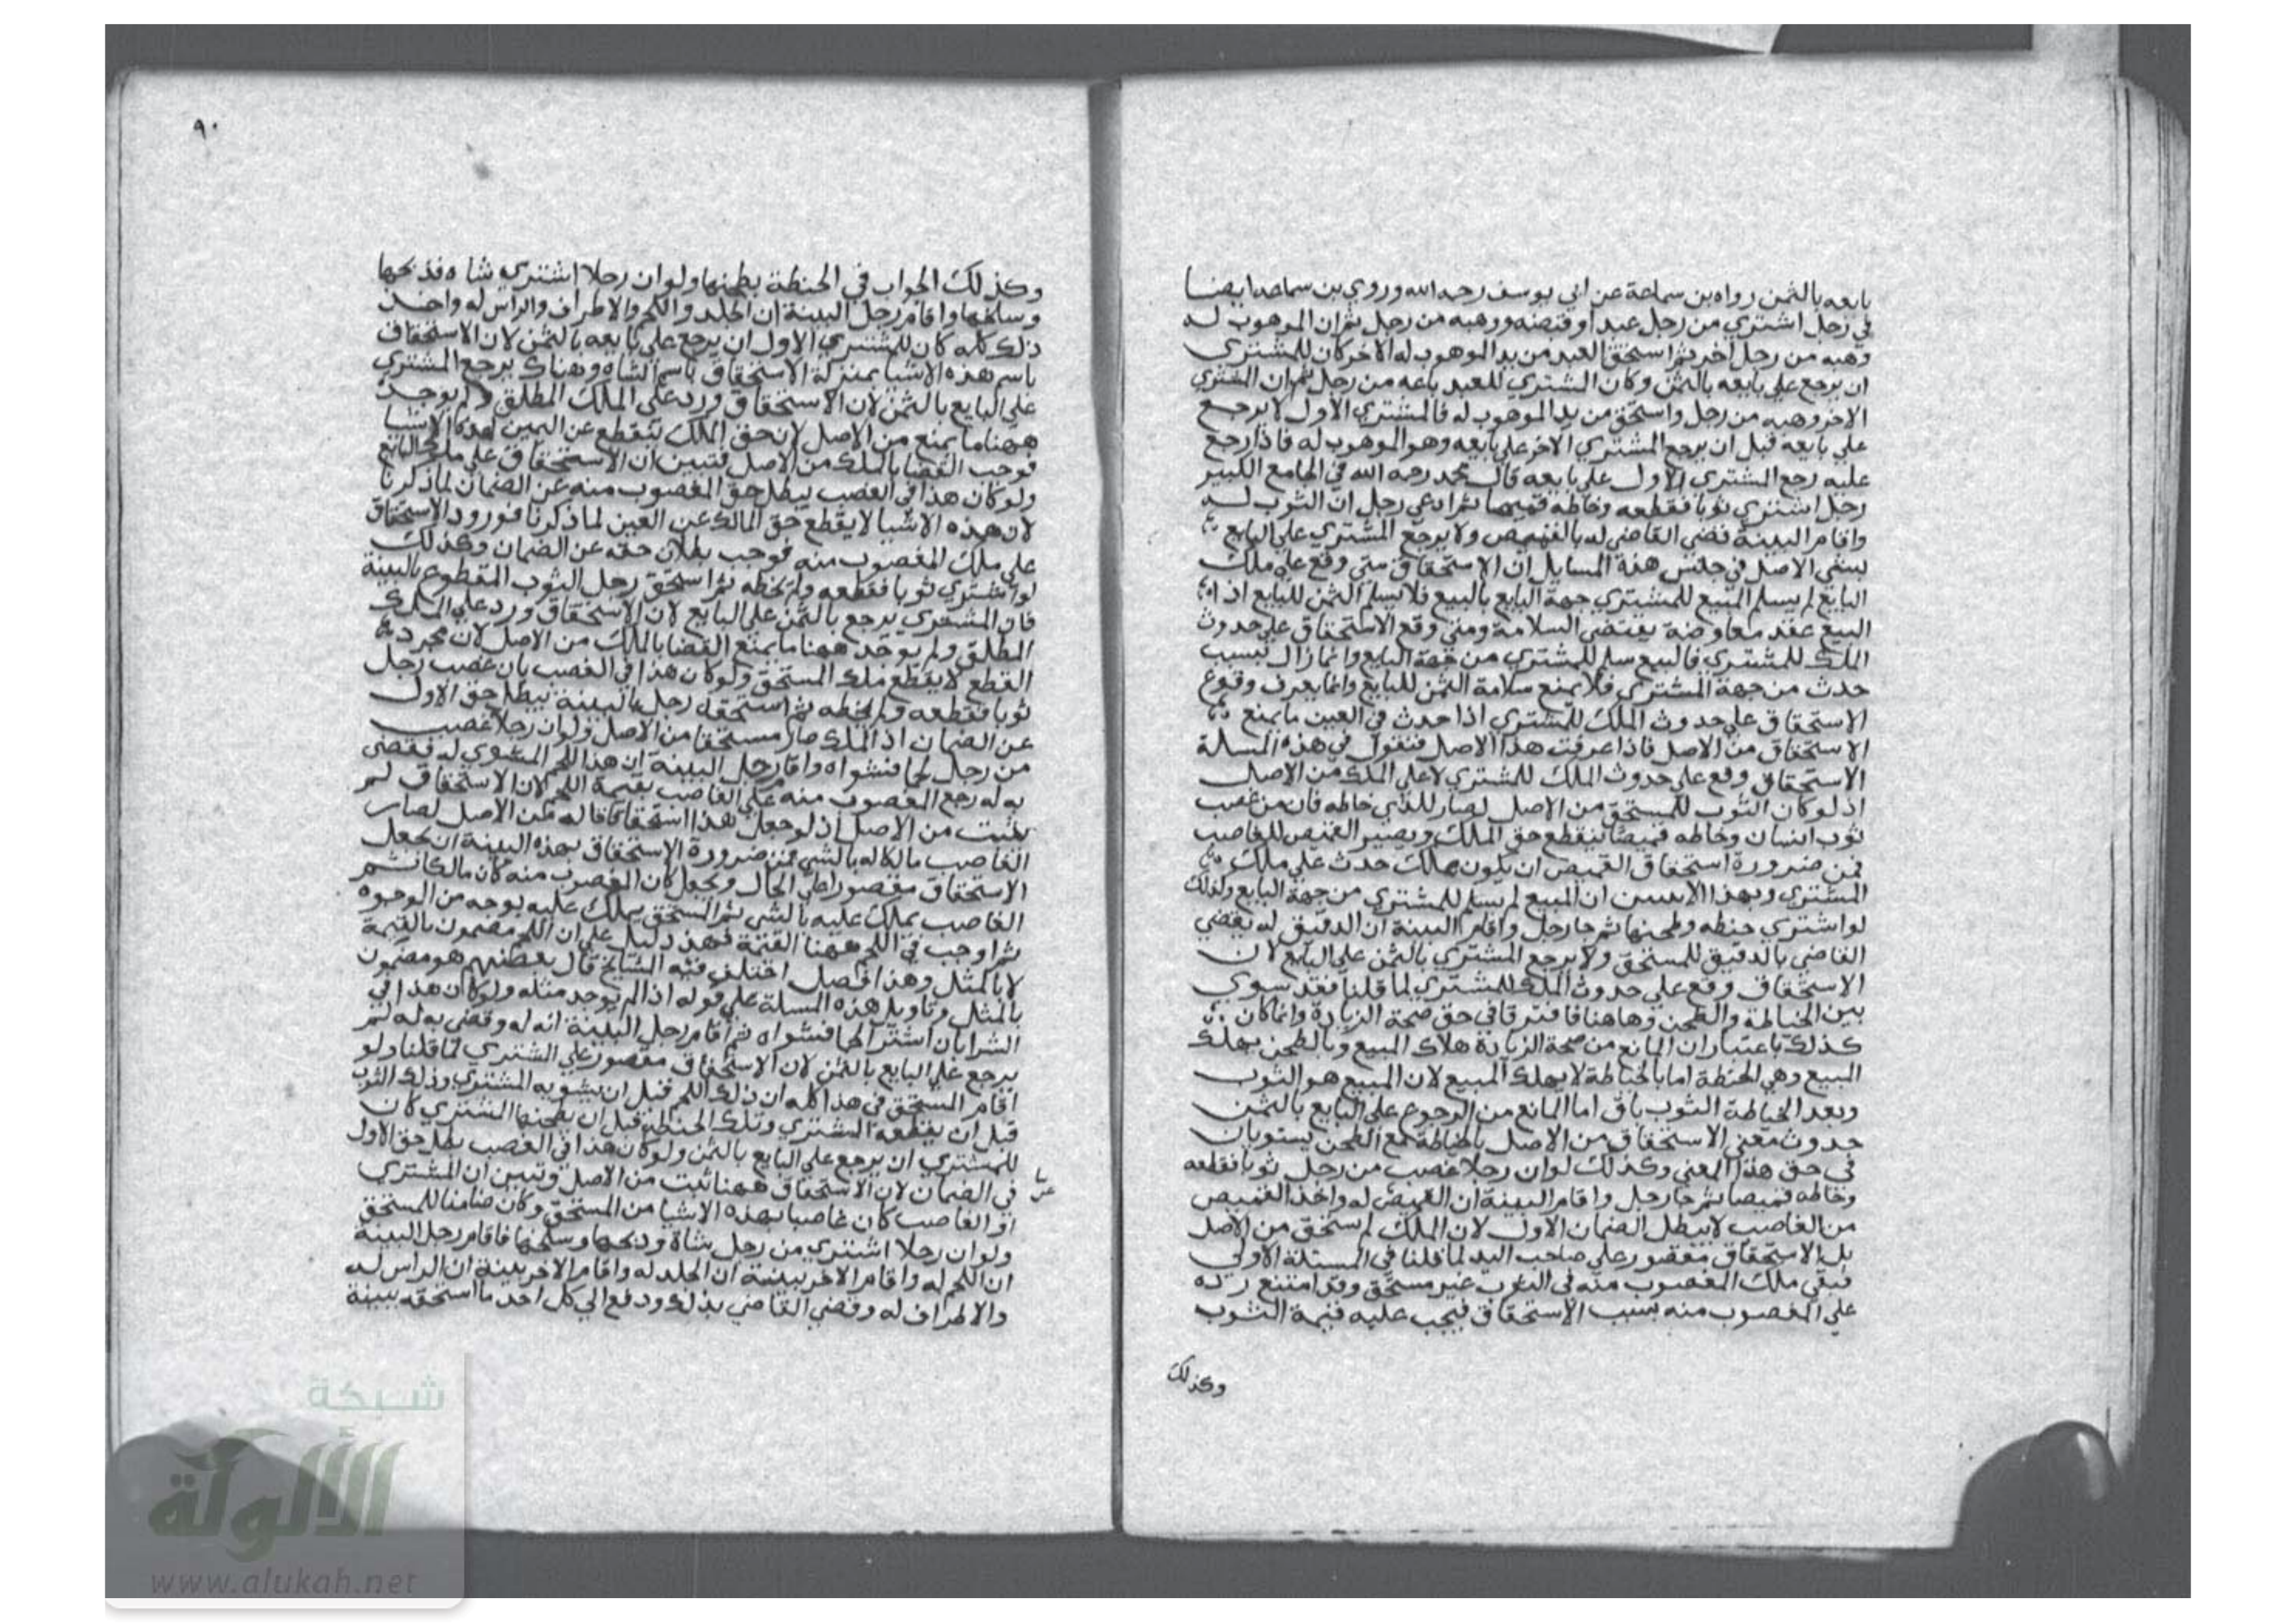 بايعه بالثمن رواه بن سماعة عن ابي يوسف رحمه الله وروي بن سماعه ايضا
في رجل اشتري من رجل عبدا وقبضه ووهبه من رجل ثم ان الموهوب له
وهبه من رجل اخر ثم استحق العبد من يد الموهوب له الاخر كان للمشتري
ان يرجع علي بايعه بالثمن وكان المشتري للعبد باعه من رجل ثم ان المشتري
الاخر وهبه من رجل واستحق من يد الموهوب له فالمشتري الاول لا يرجع
علي بايعه قبل ان يرجع المشتري الاخر علي بايعه وهو الموهوب له فاذا رجع
عليه رجع المشتري الاول علي بايعه قال محمد رحمه الله في الجامع الكبير
رجل اشتري ثوبا فقطعه وخاطه قميصا ثم ادعي رجل ان الثوب له
واقام البينة قضي القاضي له بالقميص ولا يرجع المشتري علي البايع
الاصل في جنس هذة المسايل ان الاستحقاق متي وقع علي ملك
البايع لم يسلم المبيع للمشتري جهة البايع بالبيع فلا يسلم الثمن للبايع اذ
البيع عقد معاوضة يقتضي السلامة ومتي وقع الاستحقاق علي حدوث
الملك للمشتري فالبيع سلم للمشتري من جهة البايع وانما زال بسبب
حدث من جهة المشتري فلا يمنع سلامة الثمن للبايع وانما يعرف وقوع
الاستحقاق علي حدوث الملك للمشتري اذا حدث في العين ما يمنع
الاستحقاق من الاصل فاذا عرفت هذا الاصل فنقول في هذه المسلة
الاستحقاق وقع علي حدوث الملك للمشتري لا علي الملك من الاصل
اذ لو كان الثوب للمستحق من الاصل لصار للذي خاطه فان من غصب
ثوب انسان وخاطه قميصا ينقطع حق الملك ويصير القميص للغاصب
فمن ضرورة استحقاق القميص ان يكون بملك حدث علي ملك
المشتري وبهذا لا يتبين ان المبيع لم يسلم للمشتري من جهة البايع وكذلك
لو اشتري حنطه وطحنها ثم جا رجل واقام البينة ان الدقيق له يقضي
القاضي بالدقيق للمستحق ولا يرجع المشتري بالثمن علي البايع لان
الاستحقاق وقع علي حدوث الملك للمشتري لما قلنا فقد سوي
بين الخياطة والطحن وهاهنا فافترقا في حق صحة الزيادة وانما كان
كذلك باعتبار ان المانع من صحة الزيادة هلاك المبيع وبالطحن يهلك
المبيع وهي الحنطة اما بالخياطة لا يهلك المبيع لان المبيع هو الثوب
وبعد الخياطة الثوب باق اما المانع من الرجوع علي البايع بالثمن
حدوث معني الاستحقاق من الاصل بالخياطة مع الطحن يستويان
في حق هذا المعني وكذلك لو ان رجلا غصب من رجل ثوبا فقطعه
وخاطه قميصا ثم جا رجل واقام البينة ان القميص له واخذ القميص
من الغاصب لا يبطل الضمان الاول لان الملك لم يستحق من الاصل
بل الاستحقاق مقصور علي صاحب اليد لما قلنا في المسئلة الاولي
فبقي ملك المغصوب منه في الثوب غير مستحق وقد امتنع رده
علي المغصوب منه بسبب الاستحقاق فيجب عليه قيمة الثوب
وكذلك
٩٠
وكذلك الجواب في الحنطة يطحنها ولو ان رجلا اشتري شاه فذبحها
وسلخها واقام رجل البينة ان الجلد واللحم والاطراف والراس له واخذ
ذلك كله كان للمشتري الاول ان يرجع علي بايعه بالثمن لان الاستحقاق
باسم هذه الاشيا بمنزلة الاستحقاق باسم الشاه وهناك يرجع المشتري
علي البايع بالثمن لان الاستحقاق ورد علي الملك المطلق ولم يوجد
ههنا ما يمنع من الاصل لان حق الملك ينقطع عن العين بهذه الاشيا
فوجب القضا بالملك من الاصل فتبين ان الاستحقاق علي ملك البايع
ولو كان هذا في الغصب يبطل حق المغصوب منه عن الضمان لما ذكرنا
لان هذه الاشيا لا يقطع حق المالك عن العين لما ذكرنا فورود الاستحقاق
علي ملك المغصوب منه فوجب بطلان حقه عن الضمان وكذلك
لو اشتري ثوبا فقطعه ولم يخطه ثم استحق رجل الثوب المقطوع بالبينة
فان المشتري يرجع بالثمن علي البايع لان الاستحقاق ورد علي الملك
المطلق ولم يوجد ههنا ما يمنع القضا بالملك من الاصل لان مجرد
القطع لا يقطع ملك المستحق ولو كان هذا في الغصب بان غصب رجل
ثوبا فقطعه ولم يخطه ثم استحقه رجل بالبينة يبطل حق الاول
عن الضمان اذ الملك صار مستحقا من الاصل ولو ان رجلا غصب
من رجل لحما فشواه واقام رجل البينة ان هذا اللحم المشوي له فقضي
به له رجع المغصوب منه علي الغاصب بقيمة اللحم لان الاستحقاق لم
يثبت من الاصل اذ لو جعل هذا استحقاقا له من الاصل لصار
الغاصب مالكا له بالشي فمن ضرورة الاستحقاق بهذه البينة ان يجعل
الاستحقاق مقصورا علي الحال ويجعل كان المغصوب منه كان مالكا ثم
الغاصب يملك عليه بالشي ثم المستحق يملك عليه بوجه من الوجوه
ثم اوجب في اللحم ههنا القيمة فهذ دليل علي ان اللحم مضمون بالقيمة
لا بالمثل وهذا فصل اختلف فيه المشايخ قال بعضهم هو مضمون
بالمثل وتاويل هذه المسلة علي قوله اذا لم يوجد مثله ولو كان هذا في
الشرا بان اشتر لحما فشواه ثم اقام رجل البينة انه له وقضي به له لم
يرجع علي البايع بالثمن لان الاستحقاق مقصور علي المشتري لما قلنا ولو
اقام المستحق في هذا كله ان ذلك اللحم قبل ان يشويه المشتري وذلك الثوب
قبل ان يقطعه المشتري وتلك الحنطة قبل ان يطحنها المشتري كان
للمشتري ان يرجع علي البايع بالثمن ولو كان هذا في الغصب بطل حق الاول
في الضمان لان الاستحقاق ههنا ثبت من الاصل وتبين ان المشتري
او الغاصب كان غاصبا بهذه الاشيا من المستحق وكان ضامنا للمستحق
ولو ان رجلا اشتري من رجل شاة وذبحها وسلخها فاقام رجل البينة
ان اللحم له واقام الاخر بينة ان الجلد له واقام الاخر بينة ان الراس له
والاطراف له وقضي القاضي بذلك ودفع الي كل احد ما استحقه ببينة
شبكة
الألوكة
www.alukah.net